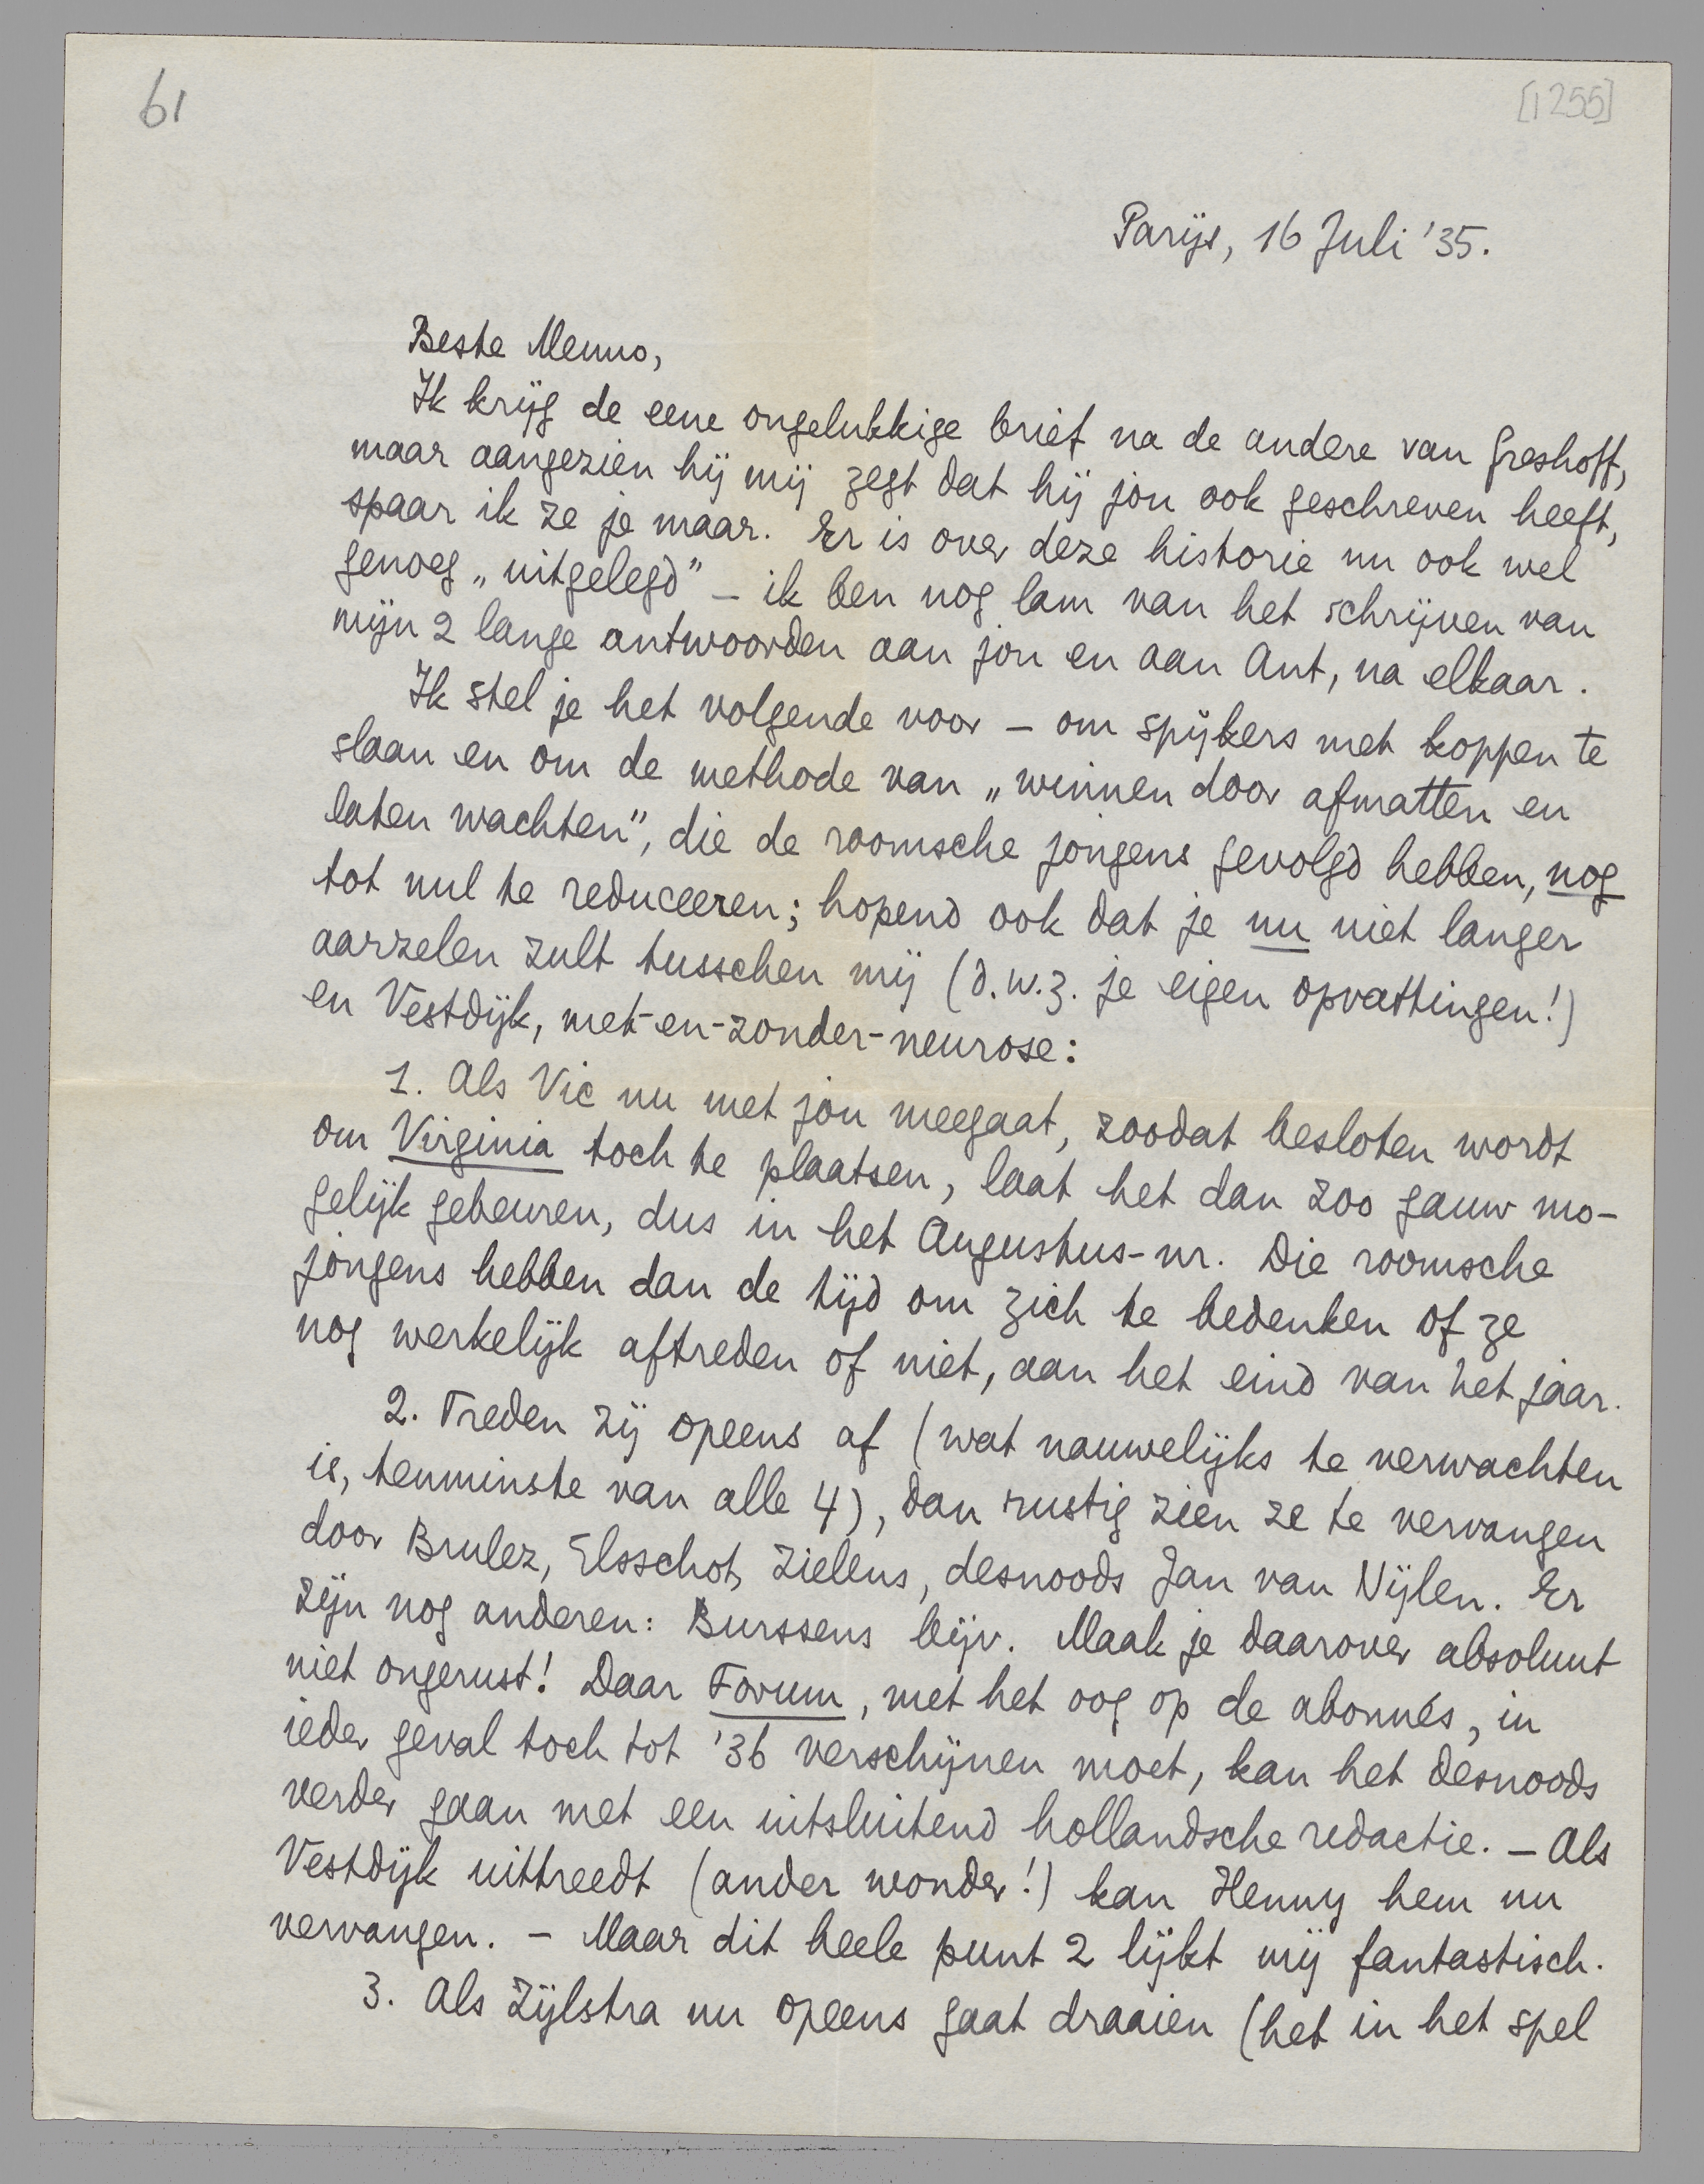 61
[1255]
Parijs, 16 Juli '35.
Beste Menno,
Ik krijg de eene ongelukkige brief na de andere van Greshoff,
maar aangezien hij mij zegt dat hij jou ook geschreven heeft,
spaar ik ze je maar. Er is over deze historie nu ook wel
genoeg „uitgelegd" – ik ben nog lam van het schrijven van
mijn 2 lange antwoorden aan jou en aan Ant, na elkaar.
Ik stel je het volgende voor – om spijkers met koppen te
slaan en om de methode van „winnen door afmatten en
laten wachten", die de roomsche jongens gevolgd hebben, nog
tot nul te reduceeren; hopend ook dat je nu niet langer
aarzelen zult tusschen mij (d.w.z. je eigen opvattingen!)
en Vestdijk, met-en-zonder-neurose:
1. Als Vic nu met jou meegaat, zoodat besloten wordt
om Virginia toch te plaatsen, laat het dan zoo gauw mo-
gelijk gebeuren, dus in het Augustus-nr. Die roomsche
jongens hebben dan de tijd om zich te bedenken of ze
nog werkelijk aftreden of niet, aan het eind van het jaar.
2. Treden zij opeens af (wat nauwelijks te verwachten
is, tenminste van alle 4), dan rustig zien ze te vervangen
door Brulez, Elsschot, Zielens, desnoods Jan van Nijlen. Er
zijn nog anderen: Burssens bijv. Maak je daarover absoluut
niet ongerust! Daar Forum, met het oog op de abonnés, in
ieder geval toch tot '36 verschijnen moet, kan het desnoods
verder gaan met een uitsluitend hollandsche redactie. – Als
Vestdijk uittreedt (ander wonder!) kan Henny hem nu
vervangen. – Maar dit heele punt 2 lijkt mij fantastisch.
3. Als Zijlstra nu opeens gaat draaien (het in het spel